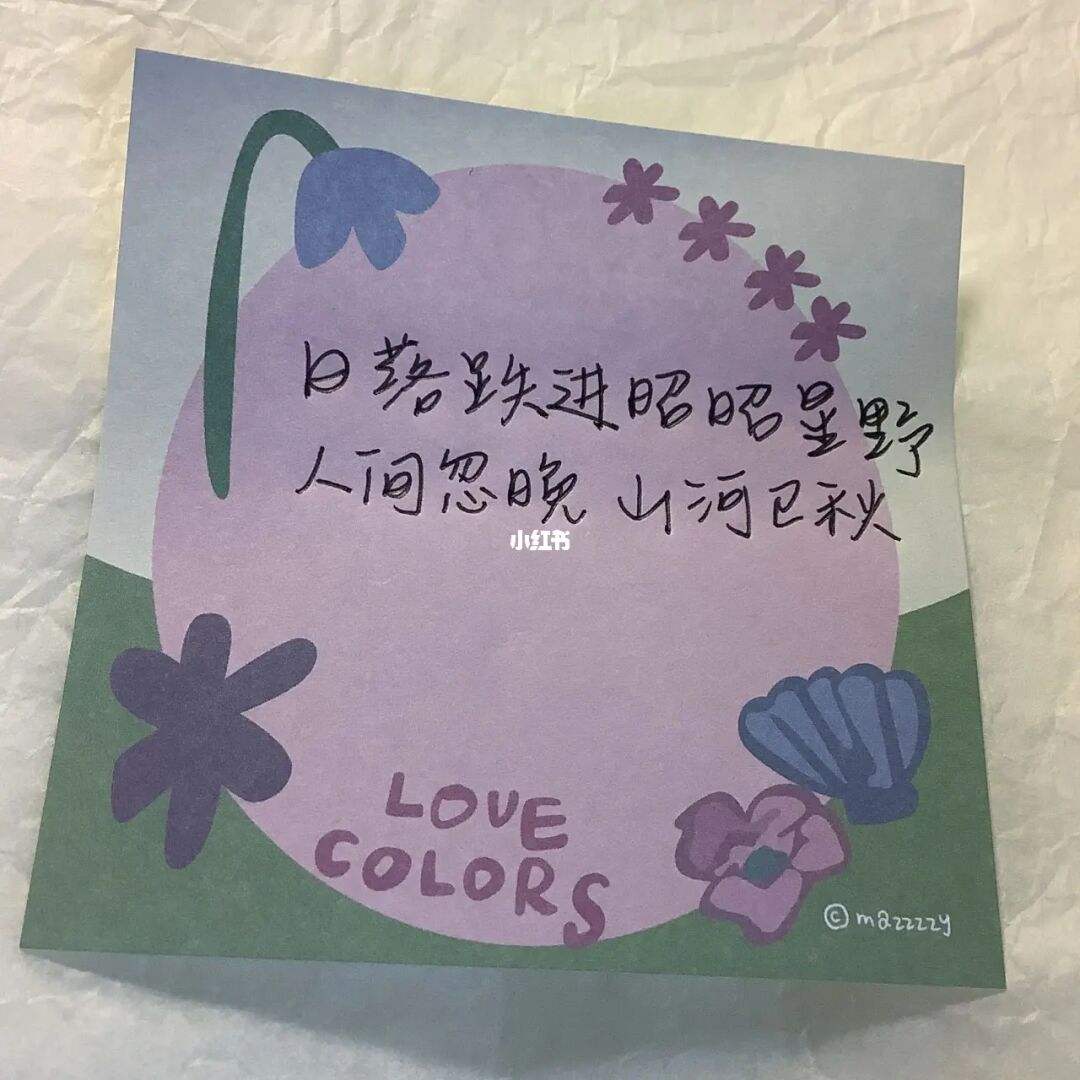 日落跌进昭昭星野
人间忽晚 山河已秋
小红书
LOVE
COLORS
©mazzzzy